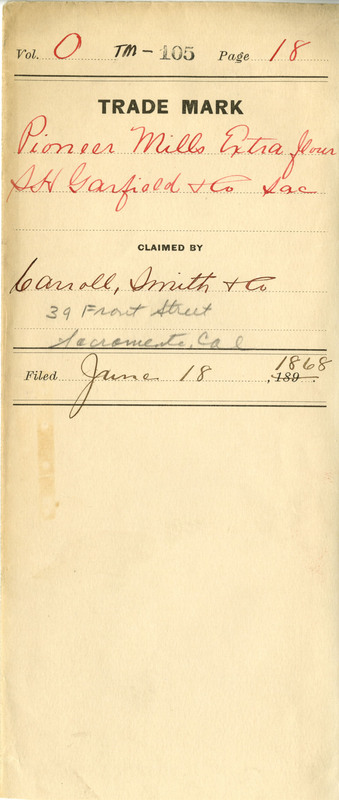 Vol. O TM-105 Page 18
TRADE MARK
Pioneer Mills Extra flour
S H Garfield & Co Sac
CLAIMED BY
Carroll, Smith & Co
39 Front Street
Sacramento, Cal
Filed June 18, 189 1868.